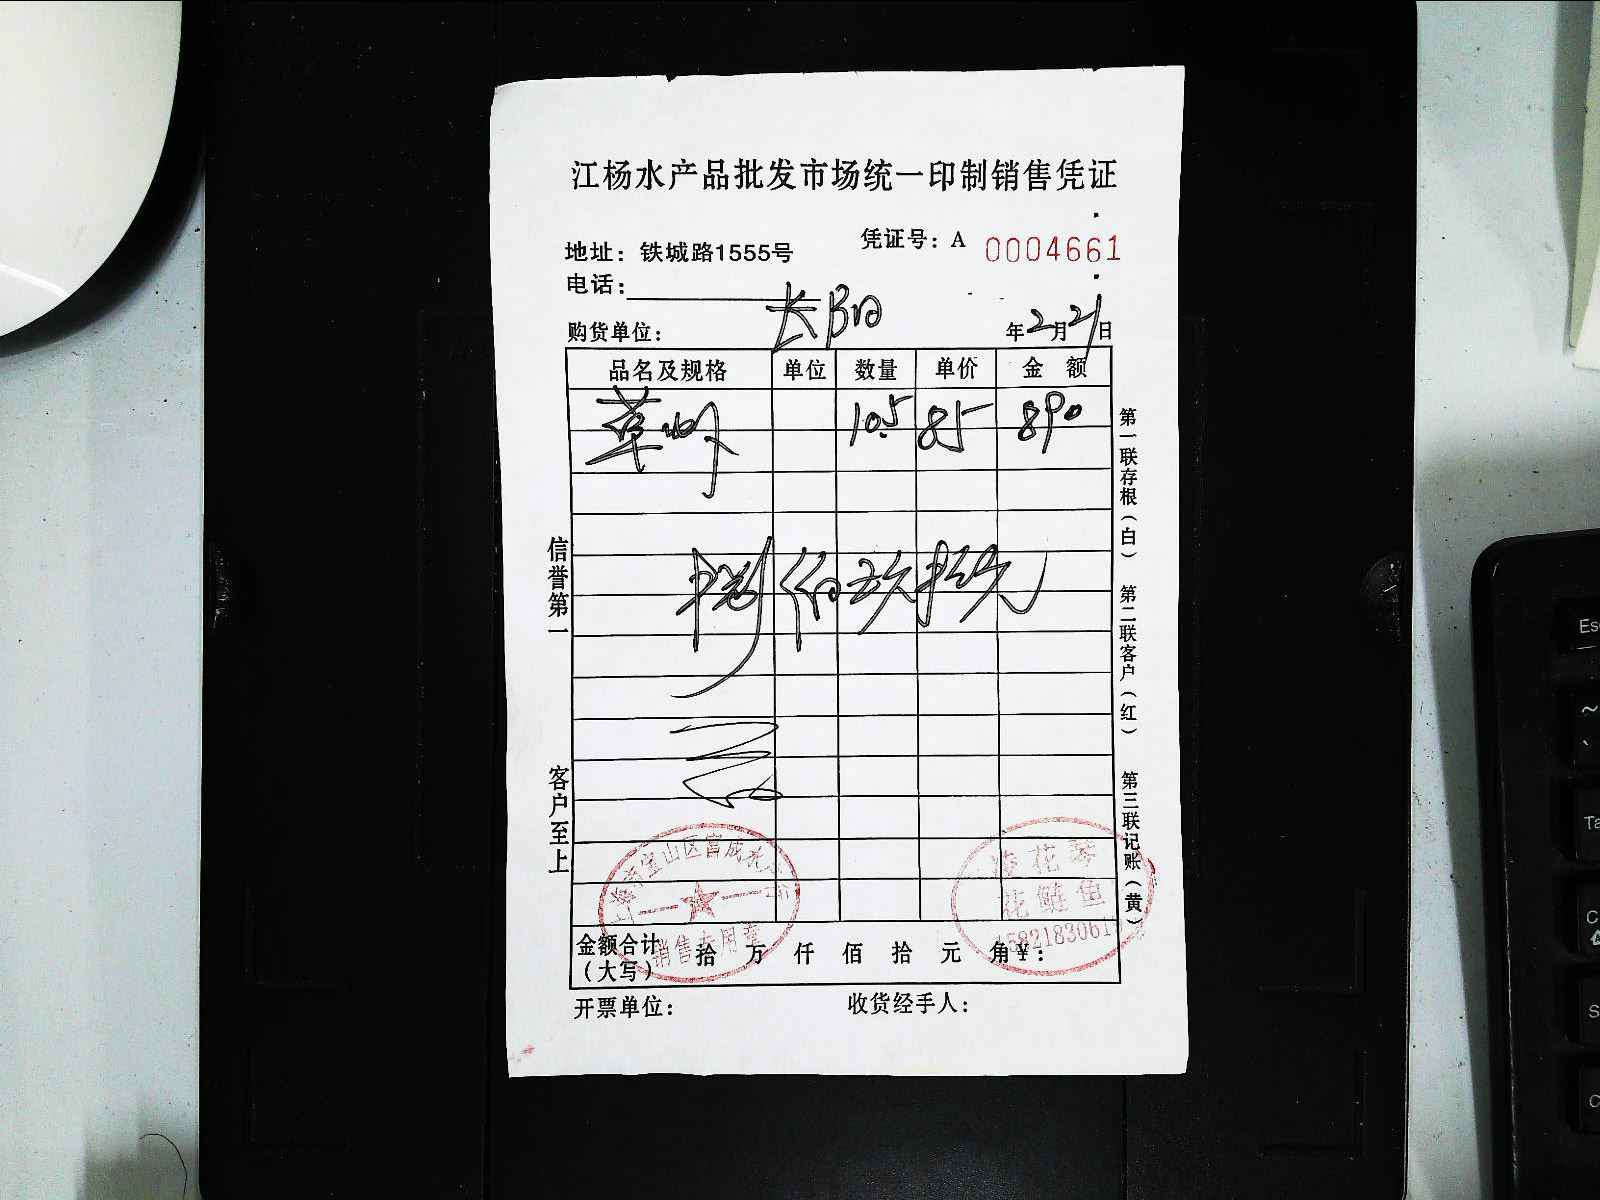 江杨水产品批发市场统一印制销售凭证
地址：铁城路1555号
凭证号：A 0004661
电话：
购货单位：长阳
年2月21日
品名及规格 单位 数量 单价 金额
草虾 10.5 85 890
捌佰玖拾元
信誉第一
客户至上
第一联存根（白）
第二联客户（红）
第三联记账（黄）
宝山区富成水
销售专用章
花琴
花鲢鱼
金额合计（大写） 拾 万 仟 佰 拾 元 角￥：
开票单位：
收货经手人：
Esc